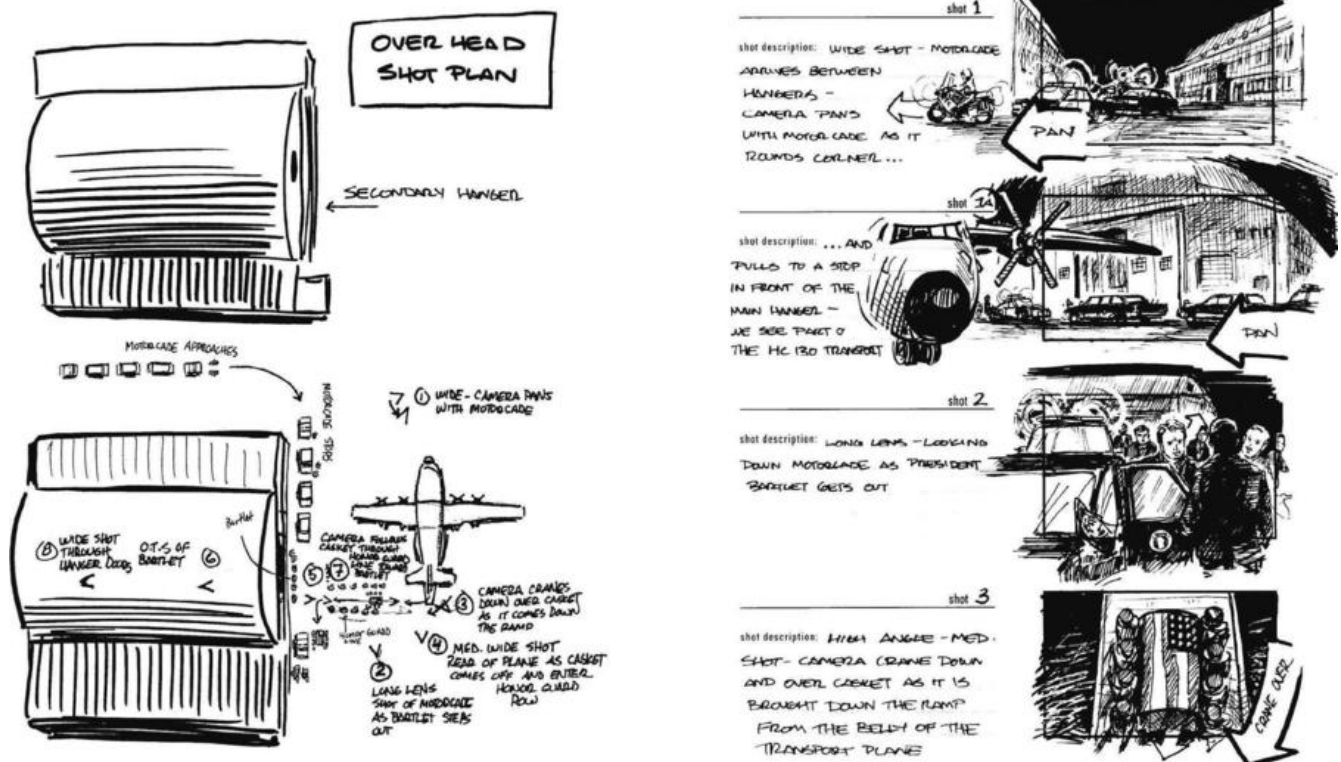 OVER HEAD
SHOT PLAN
SECONDARY HANGER
MOTORCADE APPROACHES
MOTORCADE STOPS
① WIDE - CAMERA PANS
WITH MOTORCADE
Bartlet
⑧ WIDE SHOT
THROUGH
HANGER DOORS
O.T.S OF
BARTLET
⑥
CAMERA FOLLOWS
CASKET THROUGH
HONOR GUARD
LINE TOWARD
BARTLET
⑤ ⑦
③ CAMERA CRANES
DOWN OVER CASKET
AS IT COMES DOWN
THE RAMP
HONOR GUARD
LINE
④ MED. WIDE SHOT
REAR OF PLANE AS CASKET
COMES OFF AND ENTER
HONOR GUARD
ROW
②
LONG LENS
SHOT OF MOTORCADE
AS BARTLET STEPS
OUT
shot 1
shot description: WIDE SHOT - MOTORCADE
ARRIVES BETWEEN
HANGERS -
CAMERA PANS
WITH MOTORCADE AS IT
ROUNDS CORNER...
PAN
shot 1A
shot description: ...AND
PULLS TO A STOP
IN FRONT OF THE
MAIN HANGER -
WE SEE PART O
THE HC 130 TRANSPORT
PAN
shot 2
shot description: LONG LENS - LOOKING
DOWN MOTORCADE AS PRESIDENT
BARTLET GETS OUT
shot 3
shot description: HIGH ANGLE - MED.
SHOT - CAMERA CRANE DOWN
AND OVER CASKET AS IT IS
BROUGHT DOWN THE RAMP
FROM THE BELLY OF THE
TRANSPORT PLANE
CRANE OVER